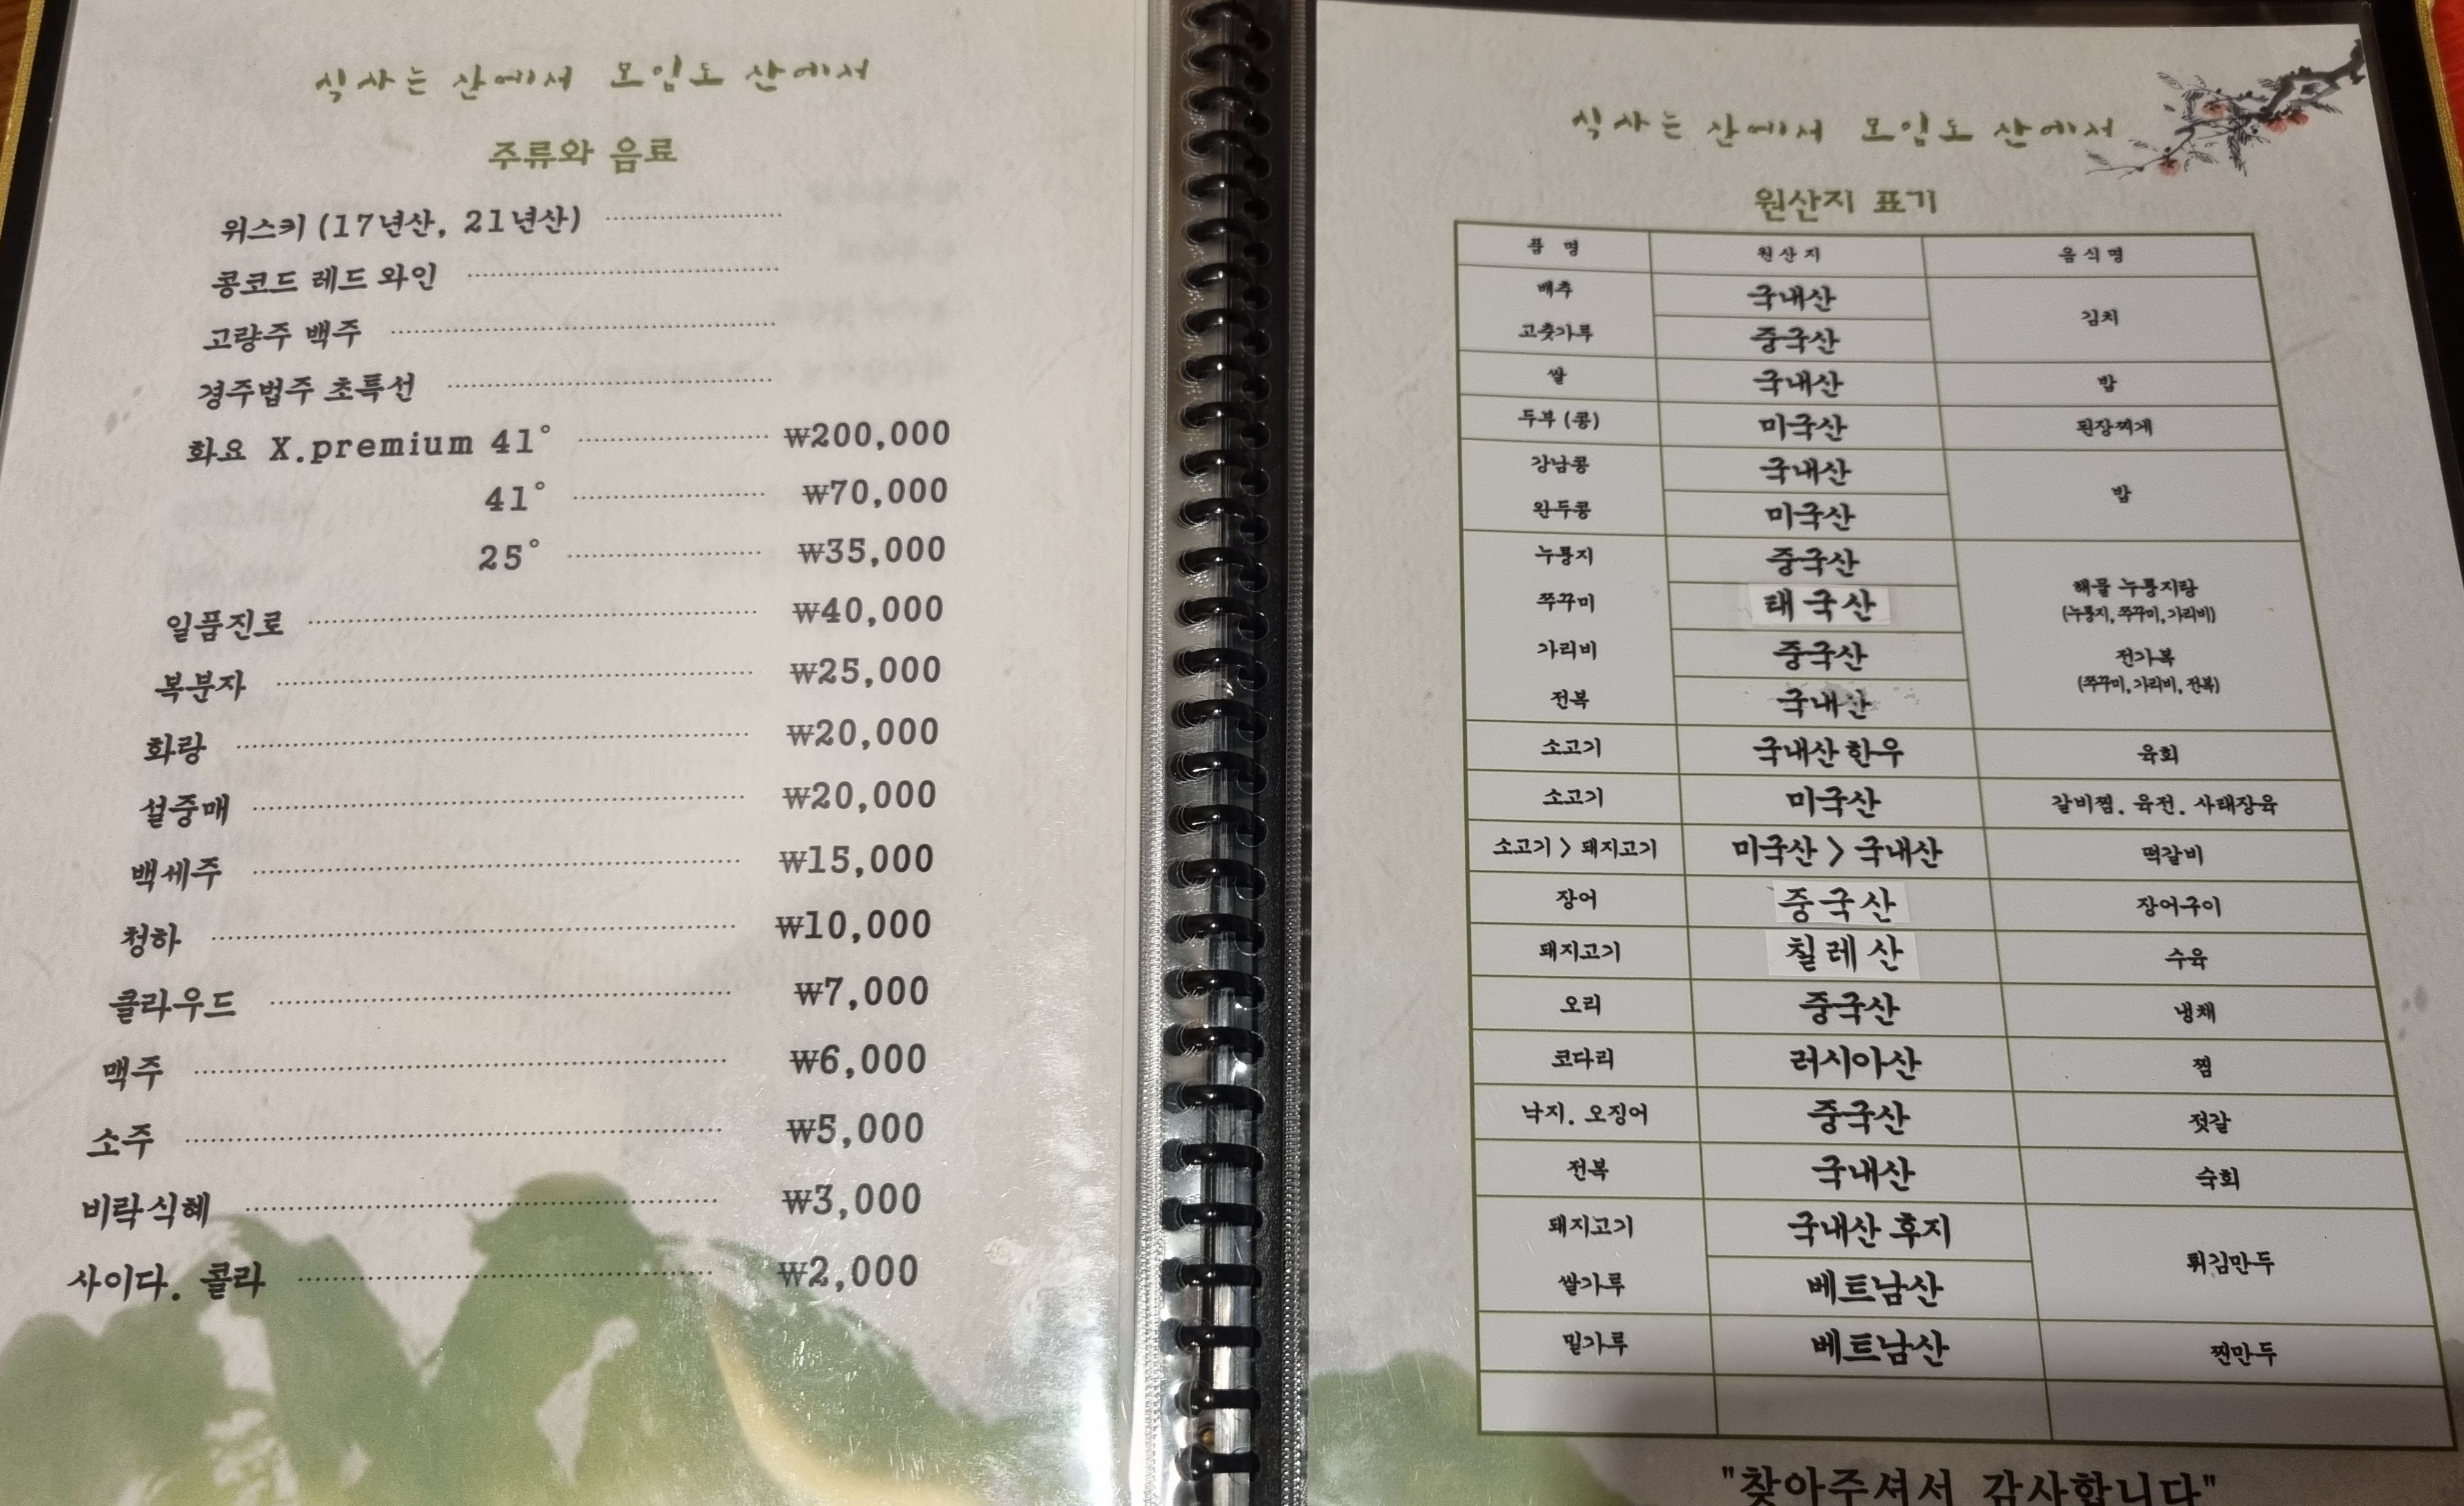 식사는 산에서 모임도 산에서
주류와 음료
위스키 (17년산, 21년산)
콩코드 레드 와인
고량주 백주
경주법주 초특선
화요 X.premium 41° ₩200,000
41° ₩70,000
25° ₩35,000
일품진로 ₩40,000
복분자 ₩25,000
화랑 ₩20,000
설중매 ₩20,000
백세주 ₩15,000
청하 ₩10,000
클라우드 ₩7,000
맥주 ₩6,000
소주 ₩5,000
비락식혜 ₩3,000
사이다. 콜라 ₩2,000
식사는 산에서 모임도 산에서
원산지 표기
품 명 원산지 음식명
배추 국내산 김치
고춧가루 중국산
쌀 국내산 밥
두부 (콩) 미국산 된장찌개
강남콩 국내산 밥
완두콩 미국산
누룽지 중국산 해물 누룽지탕
(누룽지, 쭈꾸미, 가리비)
쭈꾸미 태국산
가리비 중국산 전가복
(쭈꾸미, 가리비, 전복)
전복 국내산
소고기 국내산 한우 육회
소고기 미국산 갈비찜. 육전. 사태장육
소고기 > 돼지고기 미국산 > 국내산 떡갈비
장어 중국산 장어구이
돼지고기 칠레산 수육
오리 중국산 냉채
코다리 러시아산 찜
낙지. 오징어 중국산 젓갈
전복 국내산 숙회
돼지고기 국내산 후지 튀김만두
쌀가루 베트남산
밀가루 베트남산 찐만두
"찾아주셔서 감사합니다"